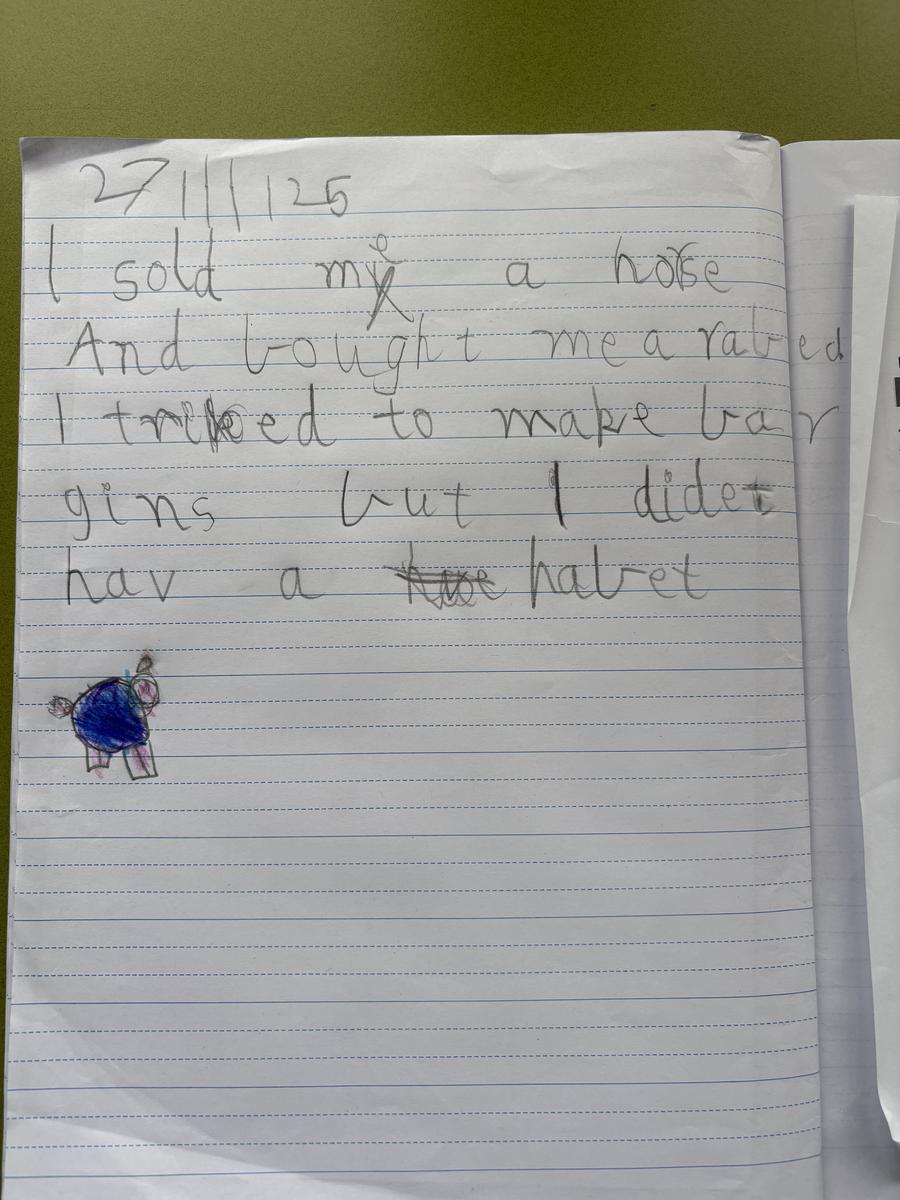 27/11/25
I sold me a horse
And bought me a rabed
I triked to make bar
gins but I didet
hav a habet